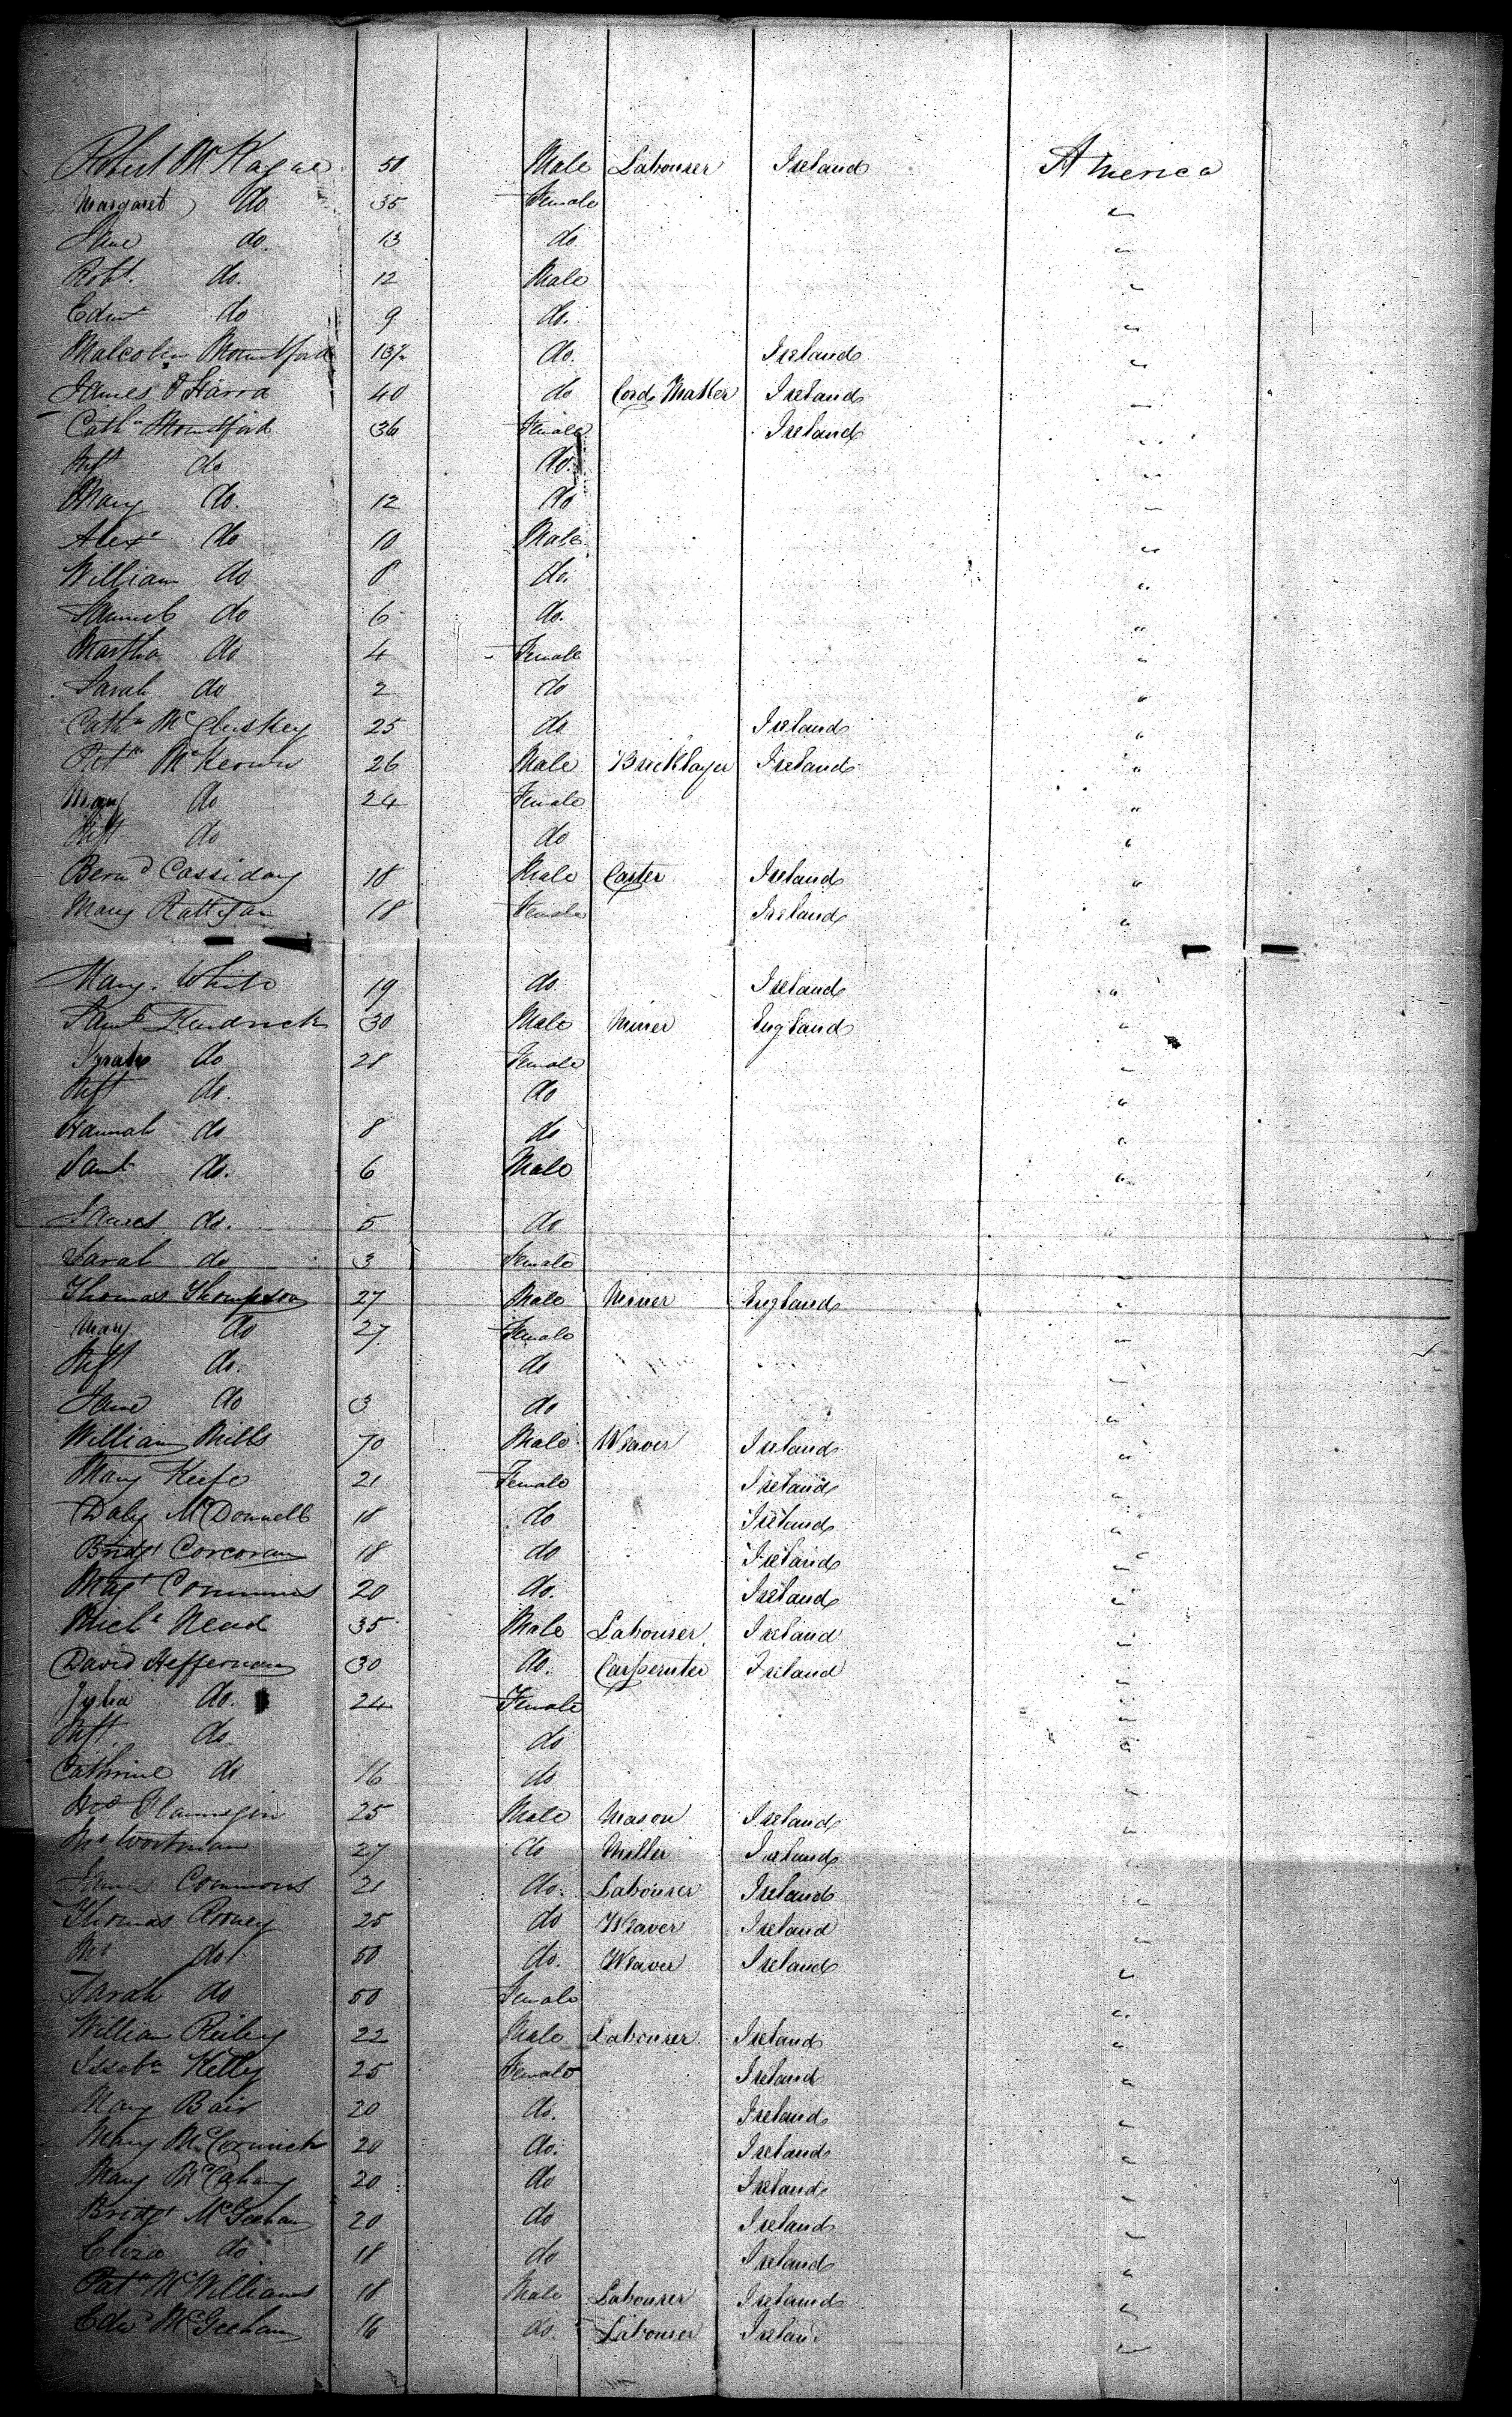 Robert McKague 50 Male Labourer Ireland America
Margaret do 35 Female "
Jane do. 13 do "
Robt. do. 12 Male "
Edwd do 9 do. "
Malcolm Mountford 13 do. Ireland "
James O'Harra 40 do Cord Maker Ireland "
Cathn Mountford 36 Female Ireland "
Inft do do. "
Mary do. 12 do "
Alexr do 10 Male "
William do 8 do. "
Samuel do 6 do. "
Martha do 4 Female "
Sarah do 2 do "
Cathn McCluskey 25 do Ireland "
McKeown 26 Male Bricklayer Ireland "
Mary do 24 Female "
Inft do do "
Bernd Cassiday 18 Male Carter Ireland "
Mary Rattigan 18 Female Ireland "
Mary White 19 do Ireland "
Saml Kendrick 30 Male Miner England "
Sarah do 28 Female "
Inft do. do "
Hannah do 8 do "
Saml do. 6 Male "
James do. 5 do "
Sarah do 3 Female "
Thomas Thompson 27 Male Miner England "
Mary do 27 Female "
Inft do. do "
Jane do 3 do "
William Mills 70 Male Weaver Ireland "
Mary Keefe 21 Female Ireland "
Daly McDonnell 18 do Ireland "
Bridgt Corcoran 18 do Ireland "
Magt Commins 20 do. Ireland "
Michl Nead 35 Male Labourer Ireland "
David Heffernan 30 do. Carpenter Ireland "
Julia do. 24 Female "
Inft. do do "
Cathrine do 16 do "
Flannigin 25 Male Mason Ireland "
Workman 27 do Miller Ireland "
James Commons 21 do. Labourer Ireland "
Thomas Rooney 25 do Weaver Ireland "
do 50 do. Weaver Ireland "
Sarah do 50 Female "
William Reiley 22 Male Labourer Ireland "
Issaba Kelly 25 Female Ireland "
Mary Bair 20 do. Ireland "
Mary McCormick 20 do. Ireland "
Mary McCahany 20 do Ireland "
Bridgt McGeehan 20 do Ireland "
Eliza do 18 do Ireland "
Patk McWilliams 18 Male Labourer Ireland "
Edwd McGeehan 16 do. Labourer Ireland "